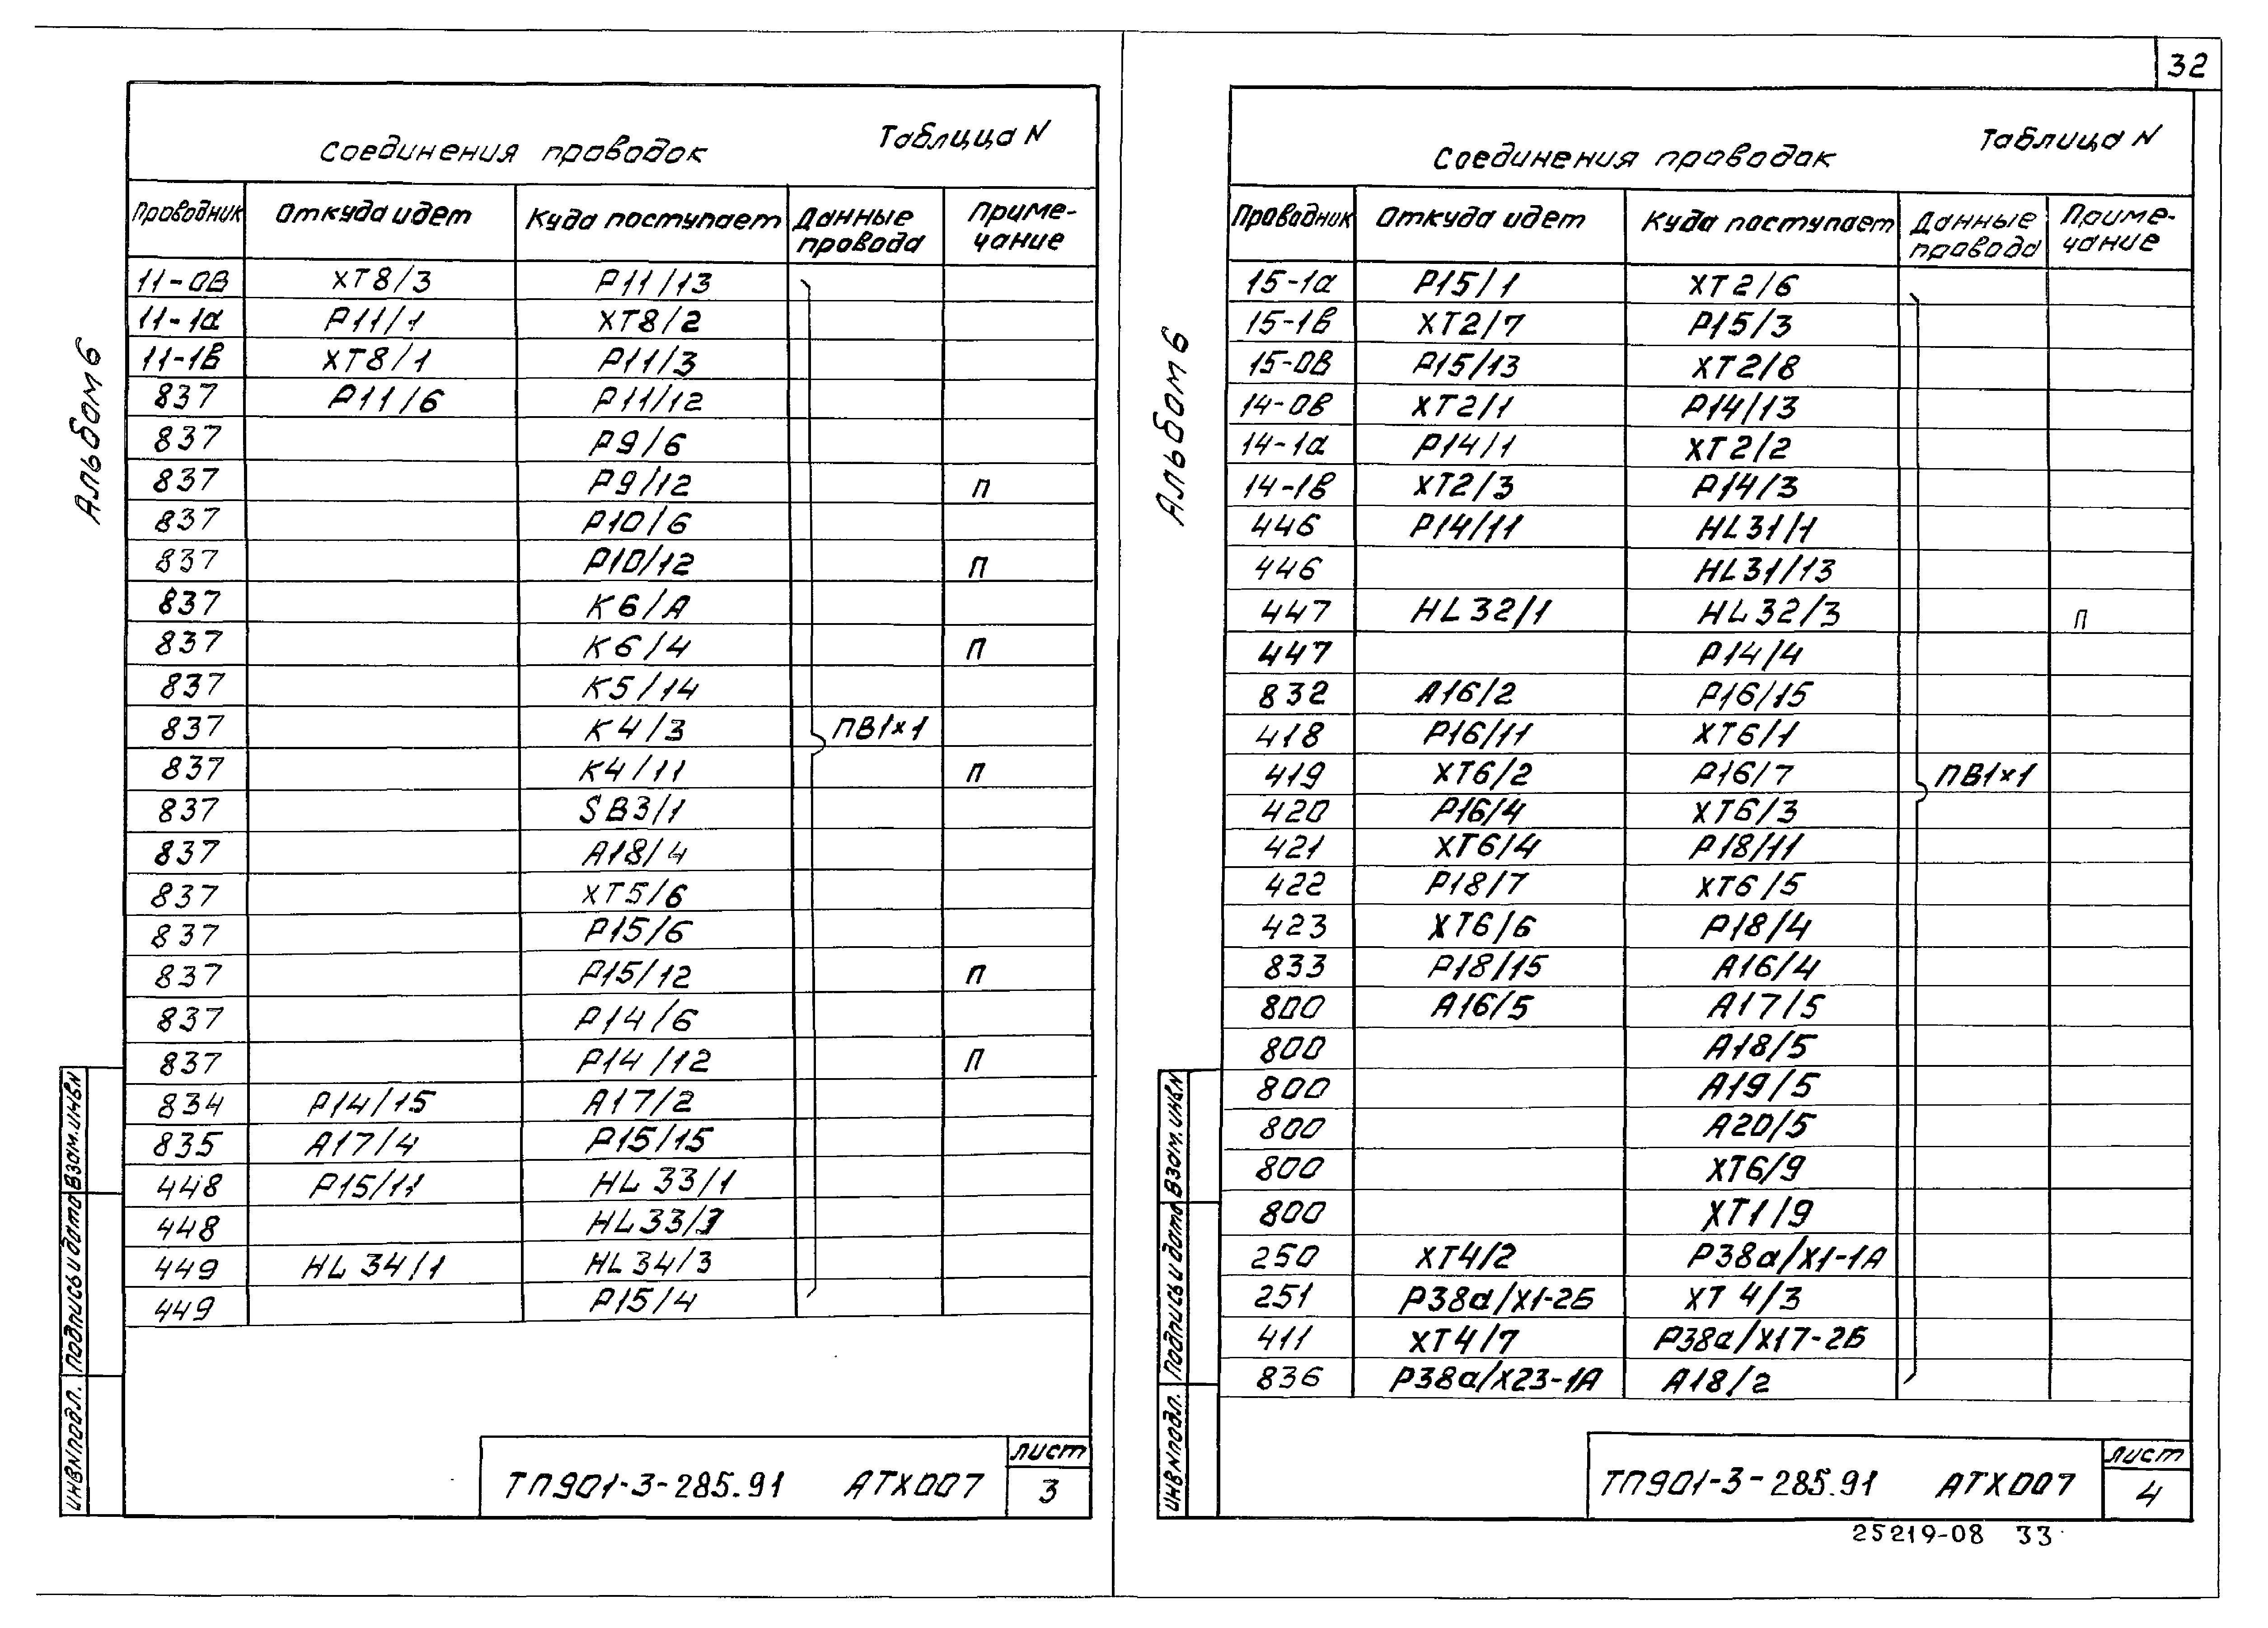 32
Альбом 6
Соединения проводок Таблица N
Проводник Откуда идет Куда поступает Данные провода Примечание
11-0В ХТ8/3 Р11/13
11-1а Р11/1 ХТ8/2
11-1в ХТ8/1 Р11/3
837 Р11/6 Р11/12
837 Р9/6
837 Р9/12 П
837 Р10/6
837 Р10/12 П
837 К6/А
837 К6/4 П
837 К5/14
837 К4/3 ПВ1×1
837 К4/11 П
837 SB3/1
837 А18/4
837 ХТ5/6
837 Р15/6
837 Р15/12 П
837 Р14/6
837 Р14/12 П
834 Р14/15 А17/2
835 А17/4 Р15/15
448 Р15/11 HL33/1
448 HL33/3
449 HL34/1 HL34/3
449 Р15/4
Инв N подл. Подпись и дата Взам. инв N
ТП901-3-285.91 АТХ007
Лист
3
Альбом 6
Соединения проводок Таблица N
Проводник Откуда идет Куда поступает Данные провода Примечание
15-1а Р15/1 ХТ2/6
15-1в ХТ2/7 Р15/3
15-0В Р15/13 ХТ2/8
14-0В ХТ2/1 Р14/13
14-1а Р14/1 ХТ2/2
14-1в ХТ2/3 Р14/3
446 Р14/11 HL31/1
446 HL31/13
447 HL32/1 HL32/3 П
447 Р14/4
832 А16/2 Р16/15
418 Р16/11 ХТ6/1
419 ХТ6/2 Р16/7 ПВ1×1
420 Р16/4 ХТ6/3
421 ХТ6/4 Р18/11
422 Р18/7 ХТ6/5
423 ХТ6/6 Р18/4
833 Р18/15 А16/4
800 А16/5 А17/5
800 А18/5
800 А19/5
800 А20/5
800 ХТ6/9
800 ХТ1/9
250 ХТ4/2 Р38а/Х1-1А
251 Р38а/Х1-2Б ХТ4/3
411 ХТ4/7 Р38а/Х17-2Б
836 Р38а/Х23-1А А18/2
Инв N подл. Подпись и дата Взам. инв N
ТП901-3-285.91 АТХ007
Лист
4
25219-08 33